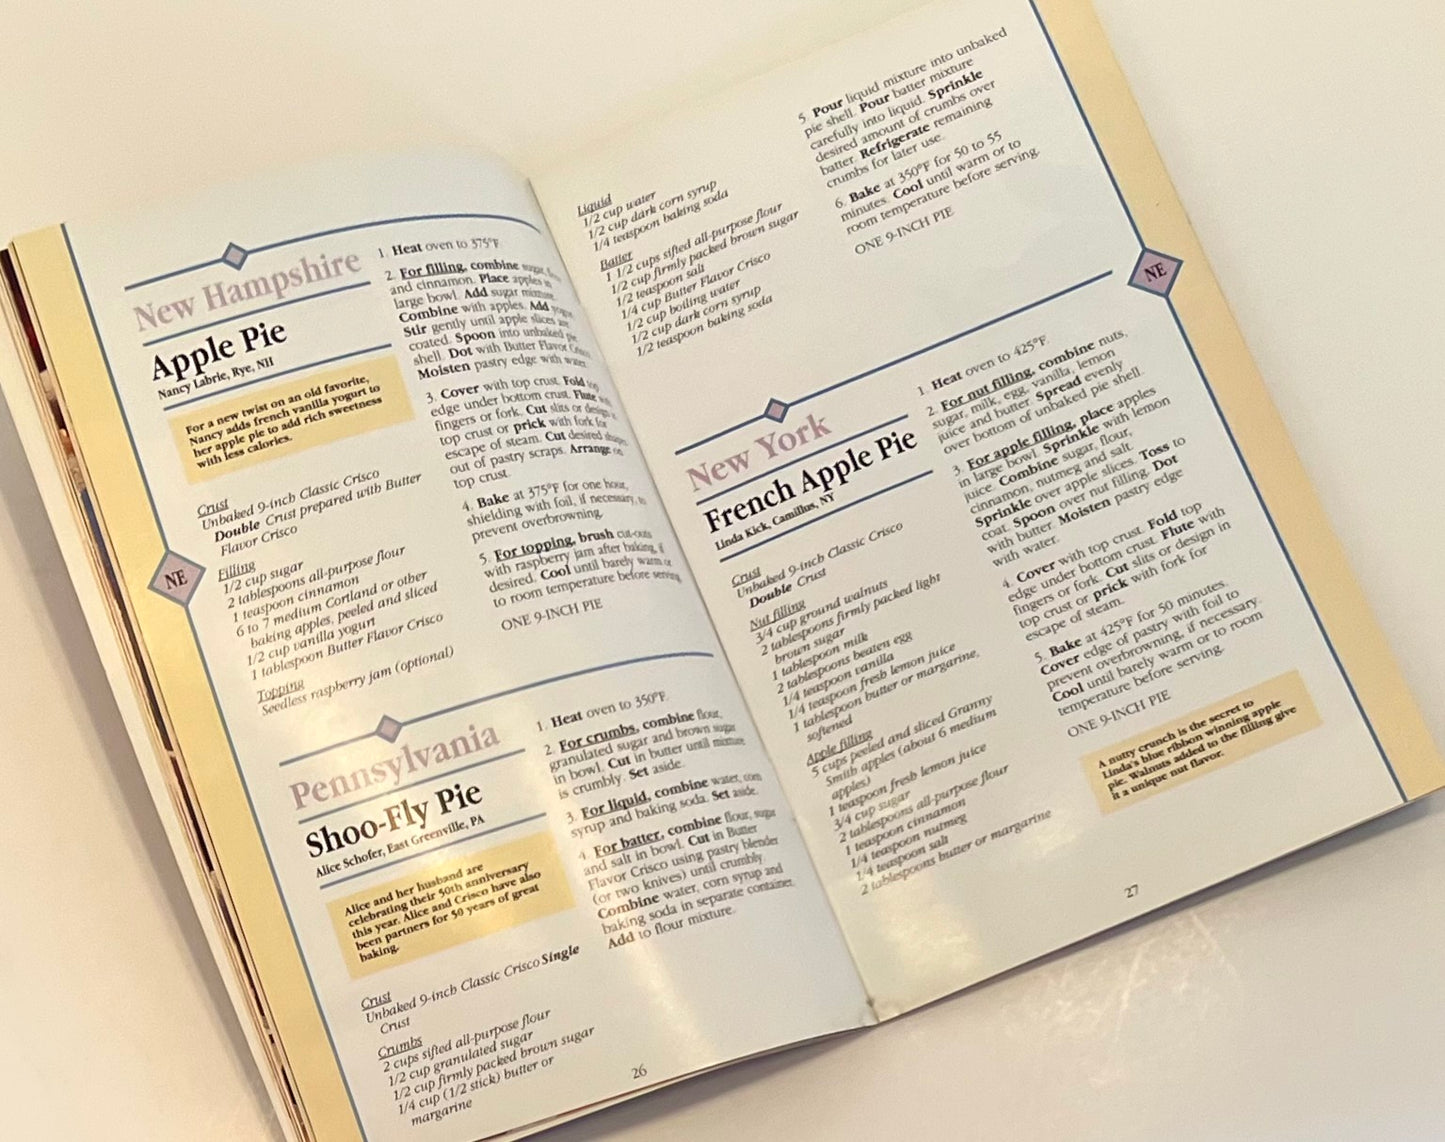 New Hampshire
Apple Pie
Nancy Labrie, Rye, NH
For a new twist on an old favorite,
Nancy adds french vanilla yogurt to
her apple pie to add rich sweetness
with less calories.
Crust
Unbaked 9-inch Classic Crisco
Double Crust prepared with Butter
Flavor Crisco
Filling
1/2 cup sugar
2 tablespoons all-purpose flour
1 teaspoon cinnamon
6 to 7 medium Cortland or other
baking apples, peeled and sliced
1/2 cup vanilla yogurt
1 tablespoon Butter Flavor Crisco
Topping
Seedless raspberry jam (optional)
1. Heat oven to 375°F.
2. For filling, combine sugar, flour
and cinnamon. Place apples in
large bowl. Add sugar mixture.
Combine with apples. Add yogurt.
Stir gently until apple slices are
coated. Spoon into unbaked pie
shell. Dot with Butter Flavor Crisco.
Moisten pastry edge with water.
3. Cover with top crust. Fold top
edge under bottom crust. Flute with
fingers or fork. Cut slits or design in
top crust or prick with fork for
escape of steam. Cut desired shapes
out of pastry scraps. Arrange on
top crust.
4. Bake at 375°F for one hour,
shielding with foil, if necessary, to
prevent overbrowning.
5. For topping, brush cut-outs
with raspberry jam after baking, if
desired. Cool until barely warm or
to room temperature before serving.
ONE 9-INCH PIE
NE
Pennsylvania
Shoo-Fly Pie
Alice Schofer, East Greenville, PA
Alice and her husband are
celebrating their 50th anniversary
this year. Alice and Crisco have also
been partners for 50 years of great
baking.
Crust
Unbaked 9-inch Classic Crisco Single
Crust
Crumbs
2 cups sifted all-purpose flour
1/2 cup granulated sugar
1/2 cup firmly packed brown sugar
1/4 cup (1/2 stick) butter or
margarine
1. Heat oven to 350°F.
2. For crumbs, combine flour,
granulated sugar and brown sugar
in bowl. Cut in butter until mixture
is crumbly. Set aside.
3. For liquid, combine water, corn
syrup and baking soda. Set aside.
4. For batter, combine flour, sugar
and salt in bowl. Cut in Butter
Flavor Crisco using pastry blender
(or two knives) until crumbly.
Combine water, corn syrup and
baking soda in separate container.
Add to flour mixture.
26
Liquid
1/2 cup water
1/2 cup dark corn syrup
1/4 teaspoon baking soda
Batter
1 1/2 cups sifted all-purpose flour
1/2 cup firmly packed brown sugar
1/2 teaspoon salt
1/4 cup Butter Flavor Crisco
1/2 cup boiling water
1/2 cup dark corn syrup
1/2 teaspoon baking soda
5. Pour liquid mixture into unbaked
pie shell. Pour batter mixture
carefully into liquid. Sprinkle
desired amount of crumbs over
batter. Refrigerate remaining
crumbs for later use.
6. Bake at 350°F for 50 to 55
minutes. Cool until warm or to
room temperature before serving.
ONE 9-INCH PIE
NE
New York
French Apple Pie
Linda Kick, Camillus, NY
Crust
Unbaked 9-inch Classic Crisco
Double Crust
Nut filling
3/4 cup ground walnuts
2 tablespoons firmly packed light
brown sugar
1 tablespoon milk
2 tablespoons beaten egg
1/4 teaspoon vanilla
1/4 teaspoon fresh lemon juice
1 tablespoon butter or margarine,
softened
Apple filling
5 cups peeled and sliced Granny
Smith apples (about 6 medium
apples)
1 teaspoon fresh lemon juice
3/4 cup sugar
2 tablespoons all-purpose flour
1 teaspoon cinnamon
1/4 teaspoon nutmeg
1/4 teaspoon salt
2 tablespoons butter or margarine
1. Heat oven to 425°F.
2. For nut filling, combine nuts,
sugar, milk, egg, vanilla, lemon
juice and butter. Spread evenly
over bottom of unbaked pie shell.
3. For apple filling, place apples
in large bowl. Sprinkle with lemon
juice. Combine sugar, flour,
cinnamon, nutmeg and salt.
Sprinkle over apple slices. Toss to
coat. Spoon over nut filling. Dot
with butter. Moisten pastry edge
with water.
4. Cover with top crust. Fold top
edge under bottom crust. Flute with
fingers or fork. Cut slits or design in
top crust or prick with fork for
escape of steam.
5. Bake at 425°F for 50 minutes.
Cover edge of pastry with foil to
prevent overbrowning, if necessary.
Cool until barely warm or to room
temperature before serving.
ONE 9-INCH PIE
A nutty crunch is the secret to
Linda's blue ribbon winning apple
pie. Walnuts added to the filling give
it a unique nut flavor.
27